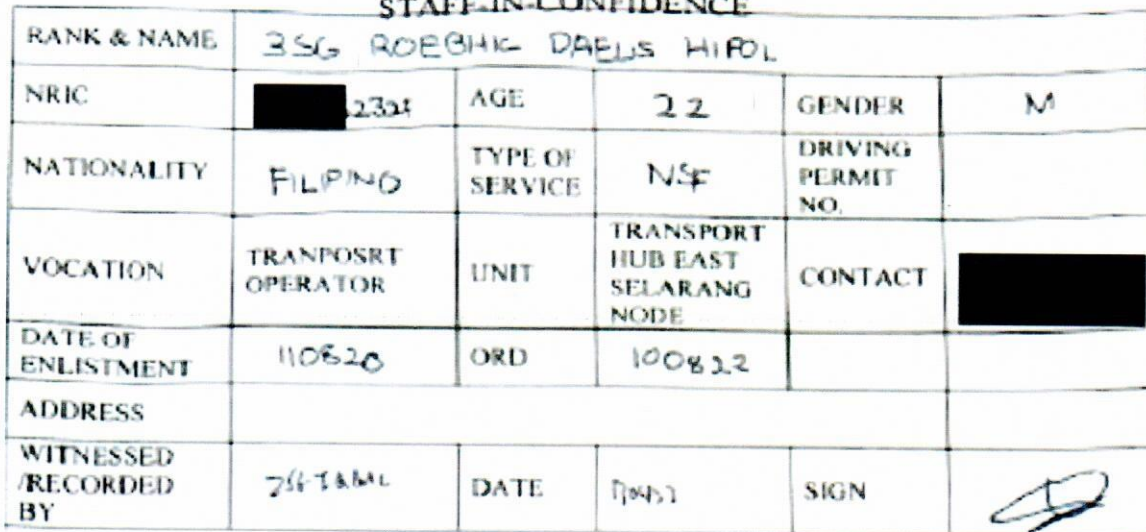 STAFF-IN-CONFIDENCE
RANK & NAME 3SG ROEBHIC DAELS HIPOL
NRIC AGE 22 GENDER M
NATIONALITY FILIPINO TYPE OF SERVICE NSF DRIVING PERMIT NO.
VOCATION TRANPOSRT OPERATOR UNIT TRANSPORT HUB EAST SELARANG NODE CONTACT
DATE OF ENLISTMENT 110820 ORD 100822
ADDRESS
WITNESSED /RECORDED BY DATE SIGN